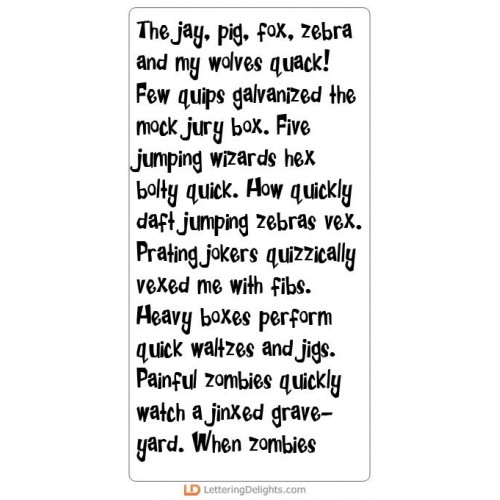 The jay, pig, fox, zebra
and my wolves quack!
Few quips galvanized the
mock jury box. Five
jumping wizards hex
bolty quick. How quickly
daft jumping zebras vex.
Prating jokers quizzically
vexed me with fibs.
Heavy boxes perform
quick waltzes and jigs.
Painful zombies quickly
watch a jinxed grave-
yard. When zombies
LD LetteringDelights.com